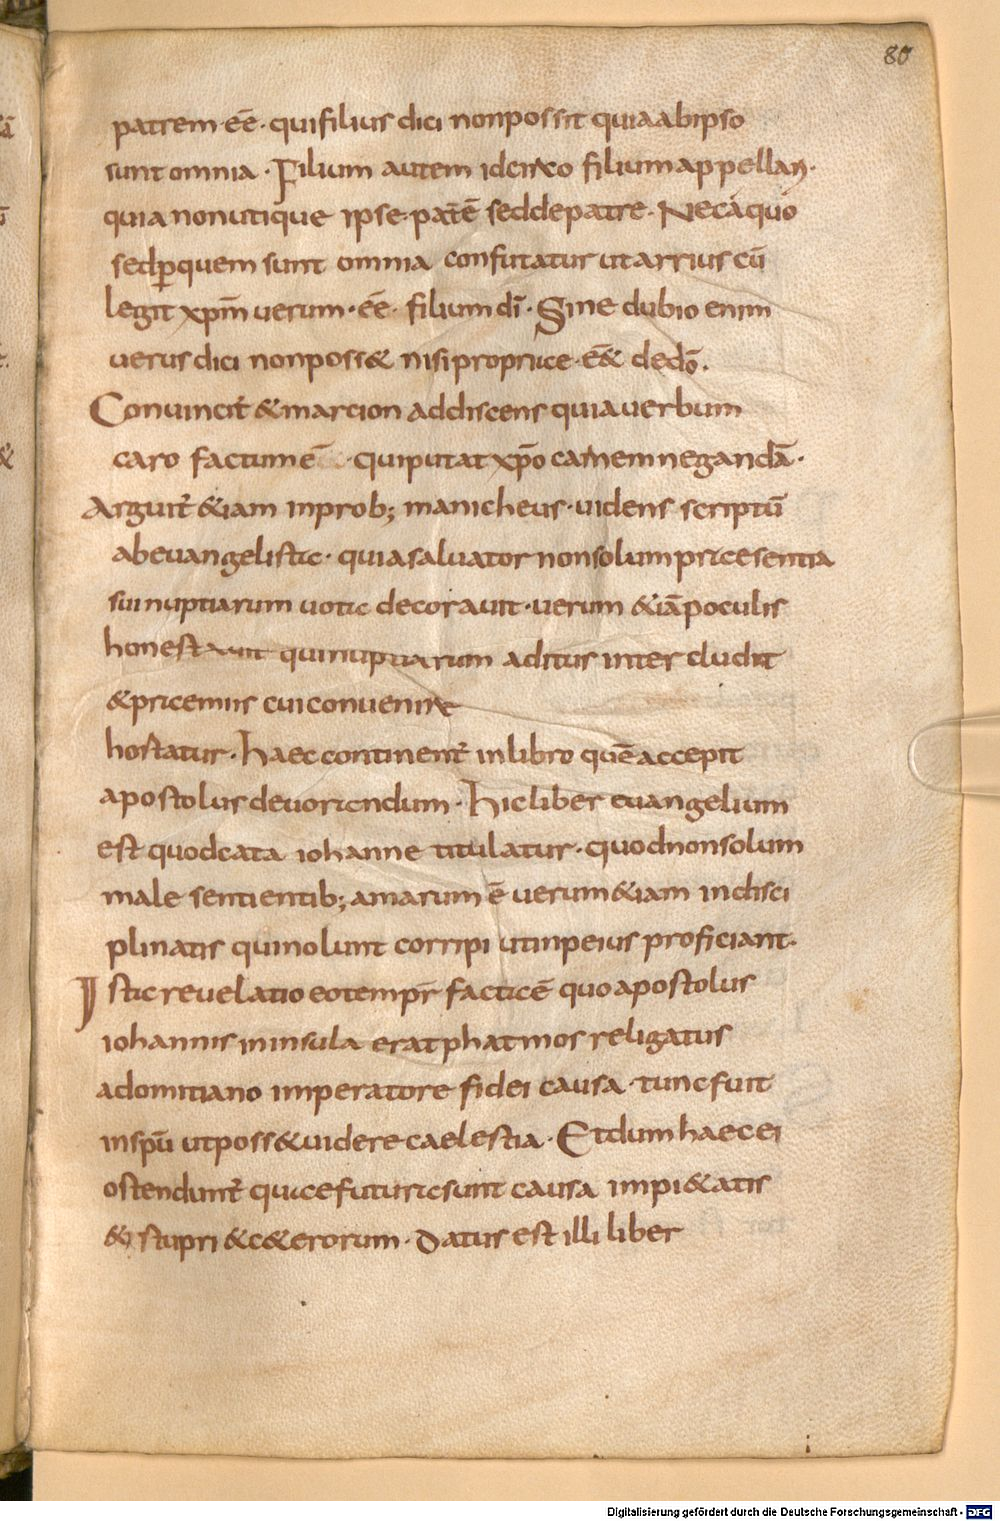 80
patrem·eē·quifilius dici nonpossit quiaabipso
sunt omnia·Filium autem idcirco filiumappellat̄·
quia nonutique ipse·patē seddepatre·Necaquo
sedp̲quem sunt omnia confutatur utarrius cū
legit xpm̄ uerum·eē·filium dī·Sine dubio enim
uerus dici nonposs& nisiproprię·eē& dedō.
Conuincit̄ &marcion addiscens quiauerbum
caro factumē·quiputat xp̄o carnemnegandā·
Arguit̄ &iam inprob; manicheus·uidens scriptū
abeuangelistę·quiasaluator nonsolumpręsentia
suinuptiarum uotę decorauit·uerum &iāpoculis
honestauit quinuptiarum aditus interdudit
&pręmiis cuiconuenire
hostatur·haeccontinent̄ inlibro quēaccepit
apostolus deuorandum·hicliber euangelium
est quodcata iohanne titulatur·quodnonsolum
male sentientib; amarum ē uerum&iam indisci
plinatis quinolunt corripi utinpeius proficiant·
Istęreuelatioeotempr̄ factaē quoapostolus
iohannis ininsula eratphatmos religatus
adomitiano imperatore fidei causa·tuncfuit
inspū utposs&uidere caelestia·Etdum haecei
ostendunt̄ quęfuturęsunt causa impi&atis
& stupri &c&erorum·Datus est illi liber
Digitalisierung gefördert durch die Deutsche Forschungsgemeinschaft - DFG